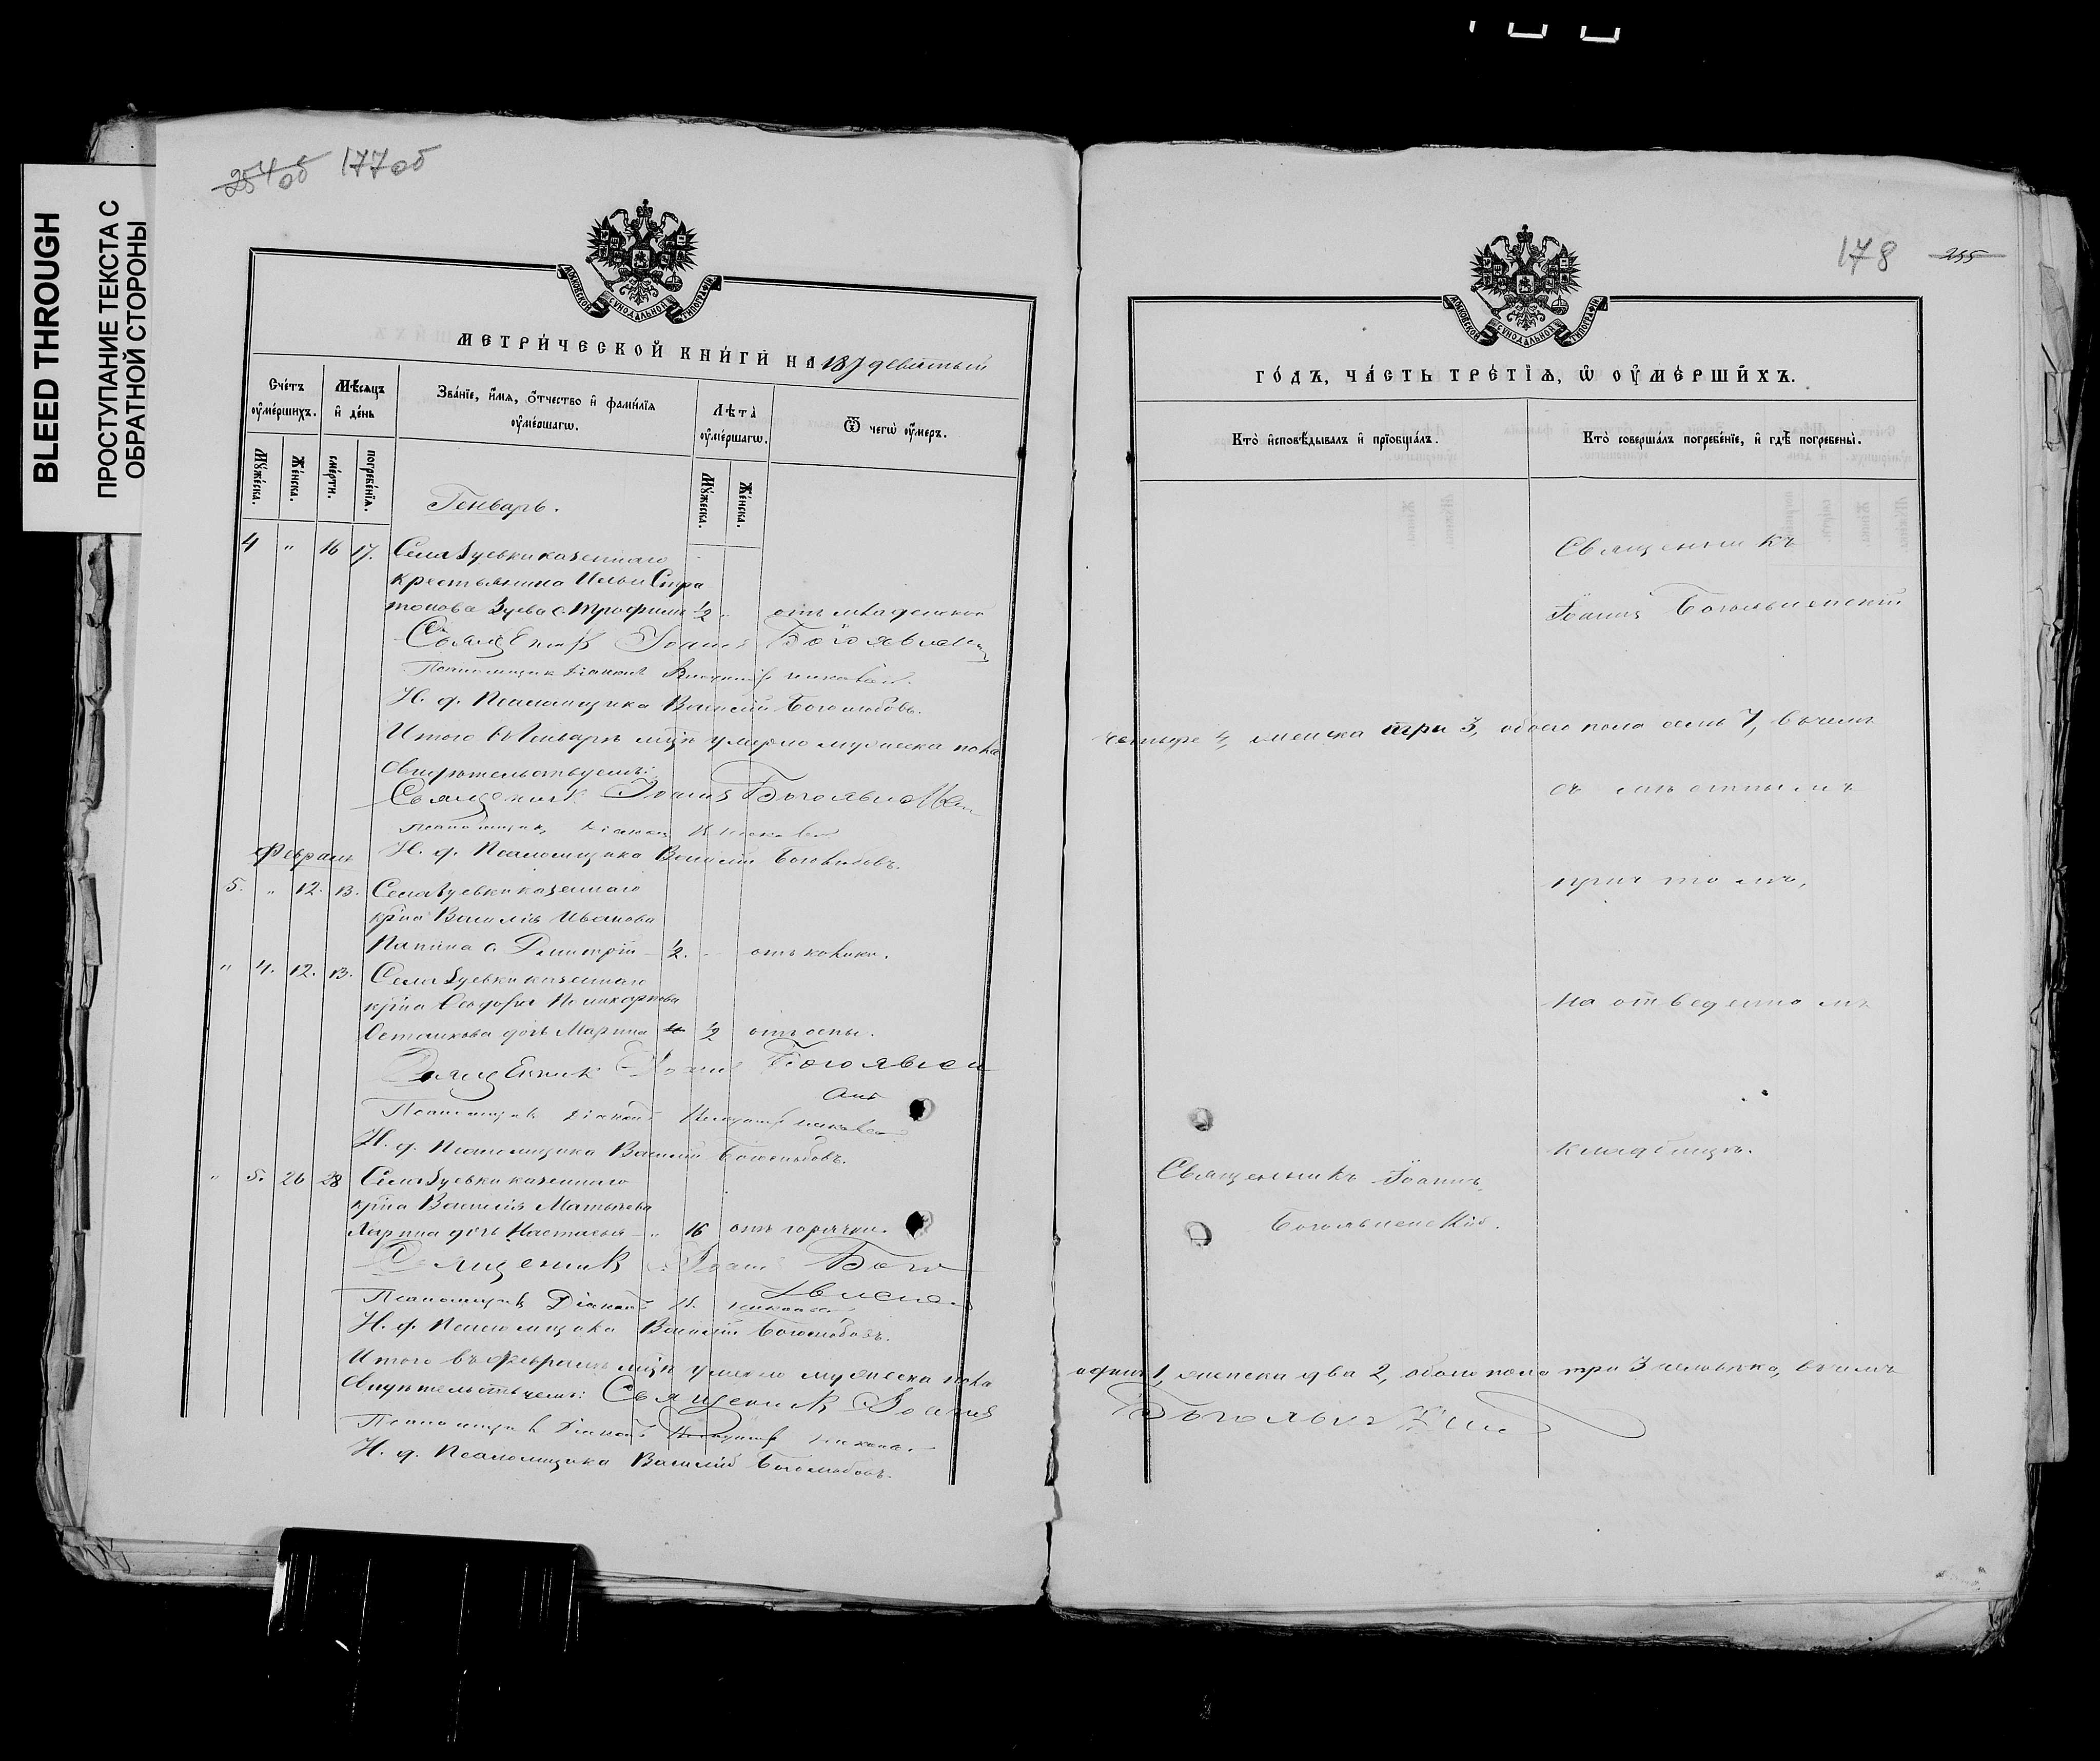 BLEED THROUGH
ПРОСТУПАНИЕ ТЕКСТА С
ОБРАТНОЙ СТОРОНЫ
254об 177об
МОСКОВСКОЙ СѴНОДАЛЬНОЙ ТИПОГРАФІИ
МЕТРИ́ЧЕСКОЙ КНИ́ГИ НА 187 девятый
Сче́тъ ᲂу҆ме́ршихъ.
Мѣ́сяцъ и҆ де́нь
Зва́нїе, и҆́мѧ, ѻ҆́тчество и҆ фами́лїѧ ᲂу҆ме́ршагѡ.
Лѣта̀ ᲂу҆ме́ршагѡ.
Ѿ чегѡ̀ ᲂу҆́меръ.
Мꙋ́жеска.
Же́нска.
сме́рти.
погребе́нїѧ.
Мꙋ́жеска.
Же́нска.
Генварь.
4 " 16 17. Села Зуевки казеннаго
крестьянина Ильи Стра
тонова Зуева с. Трофимъ 1/2 отъ младенской
Священикъ Іоаннъ Богоявлен
Псаломщик Діаконъ
И. д. Псаломщика Василій Боголюбовъ.
Итого въ Генварѣ мцѣ умерло мужеска пола
Свидѣтельствуемъ:
Священикъ Іоаннъ Богоявлен
Псаломщик, Діакон
И. д. Псаломщика Василій Боголюбовъ.
Февраль
5. " 12. 13. Села Зуевки казеннаго
крна Василія Иванова
Папина с. Димитрій 1/2. отъ колики.
" 4. 12. 13. Села Зуевки казеннаго
крна Ѳеодора Поликарпова
Остаикова дочь Марина 1/2 отъ оспы.
Священникъ Іоаннъ Богоявлен
Псаломщик Діаконъ
И. д. Псаломщика Василій Боголюбовъ.
" 5. 26 28 Села Зуевки казеннаго
крна Василія Матвѣева
Ларина дочь Настасья " 16 отъ горячки.
Священикъ Іоаннъ Бого
явленс
Псаломщикъ Діаконъ
И. д. Псаломщика Василій Боголюбовъ.
Итого въ Февралѣ мцѣ умерло мужеска пола
Свидѣтельствуемъ: Священикъ Іоаннъ
Псаломщикъ Діаконъ
И. д. Псаломщика Василій Боголюбовъ.
178 255
МОСКОВСКОЙ СѴНОДАЛЬНОЙ ТИПОГРАФІИ
ГО́ДЪ, ЧА́СТЬ ТРЕ́ТЇѦ, Ѡ҆ ОУ҆МЕ́РШИХЪ.
Кто̀ и҆сповѣ́дывалъ и҆ прїѡбща́лъ.
Кто̀ соверша́лъ погребе́нїе, и҆ гдѣ̀ погребены̀.
Священникъ
Іоаннъ Богоявленскій
четыре 4, женска три 3, обоего пола семь 7, въ чемъ
съ
причтомъ,
на отведенномъ
кладбищѣ.
Священникъ Іоаннъ
Богоявленскій.
одинъ 1, женска два 2, обоего пола три 3 человѣка, въ чемъ
Богоявленскій